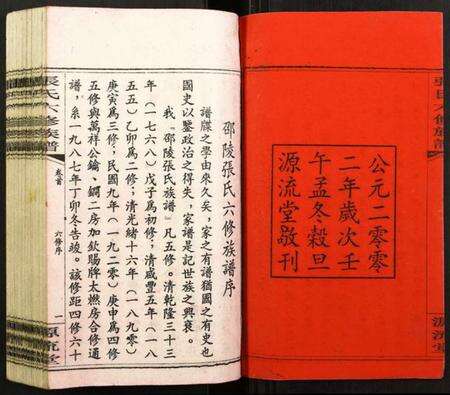 公元二零零
二年歲次壬
午孟冬穀旦
源流堂敬刊
源流堂
邵陵張氏六修族譜序
譜牒之學由來久矣，家之有譜猶國之有史也
國史以鑒政治之得失，家譜是記世族之興衰。
我『邵陵張氏族譜』凡五修。清乾隆三十三
年（一七六八）戊子爲初修；清咸豐五年（一八
五五）乙卯爲二修；清光緒十六年（一八九〇）
庚寅爲三修；民國九年（一九二〇）庚申爲四修
五修與萬祥公鑰、鐧二房加欽賜牌太燃房合修通
譜，系一九八七年丁卯冬告竣。該修距四修六十
張氏六修族譜
卷首
六修序
一
源流堂